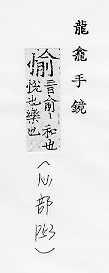 龍龕手鏡
愉
音俞丨和也
悅也樂也
(心部 P53)